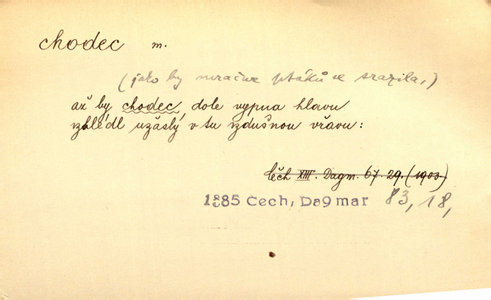 chodec m.
(jako by mračna ptáků se srazila,)
až by chodec, dole vypna hlavu
vzhlédl užaslý v tu vzdušnou vřavu:
Čech XIII. Dagm. 67. 29. (1903)
1885 Čech, Dagmar 83, 18,